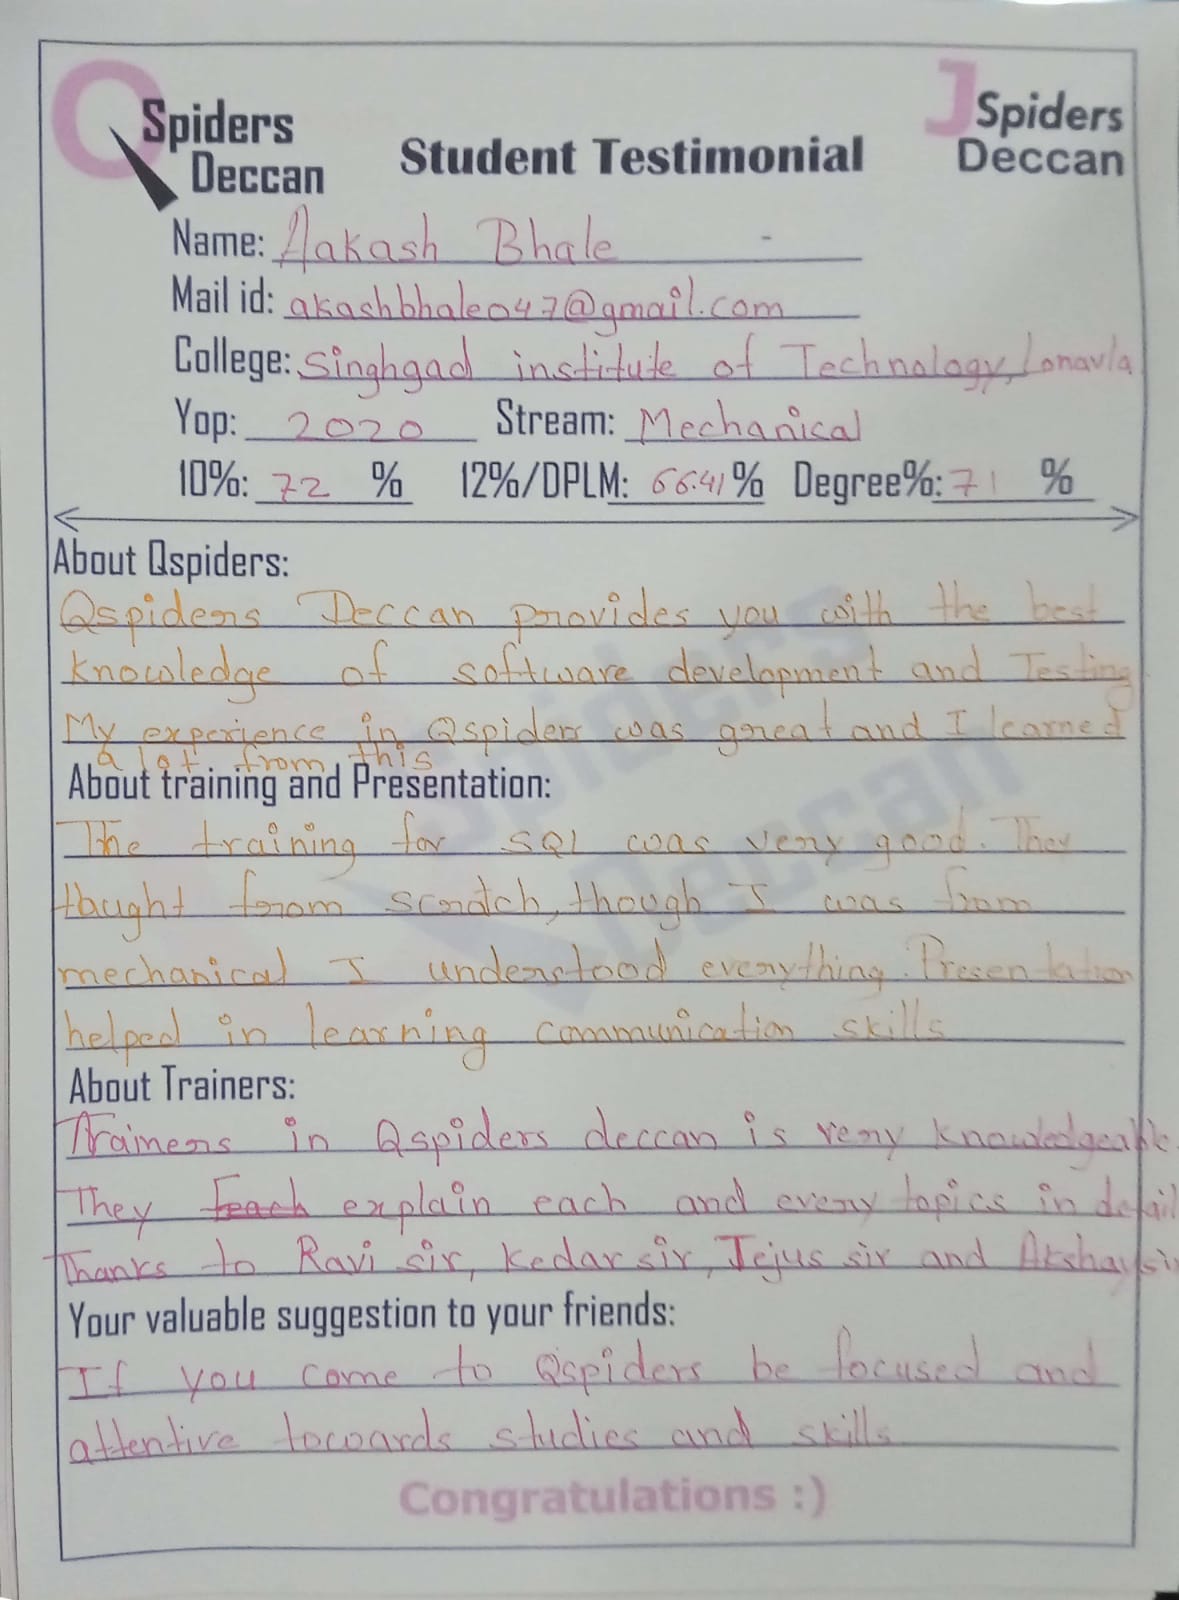 QSpiders
Deccan
JSpiders
Deccan
Student Testimonial
Name: Aakash Bhale
Mail id: akashbhale047@gmail.com
College: Singhgad institute of Technology, Lonavla
Yop: 2020 Stream: Mechanical
10%: 72 % 12%/DPLM: 66.41% Degree%: 71 %
About Qspiders:
Qspiders Deccan provides you with the best
knowledge of software development and Testing
My experience in Qspiders was great and I learned
a lot from this
About training and Presentation:
The training for SQL was very good. They
thaught from scratch, though I was from
mechanical I understood everything. Presentation
helped in learning communication skills
About Trainers:
Trainers in Qspiders deccan is very knowledgeable.
They Teach explain each and every topics in detail
Thanks to Ravi sir, Kedar sir, Tejus sir and Akshay sir
Your valuable suggestion to your friends:
If you come to Qspiders be focused and
attentive towards studies and skills
Congratulations :)
Spiders
Deccan